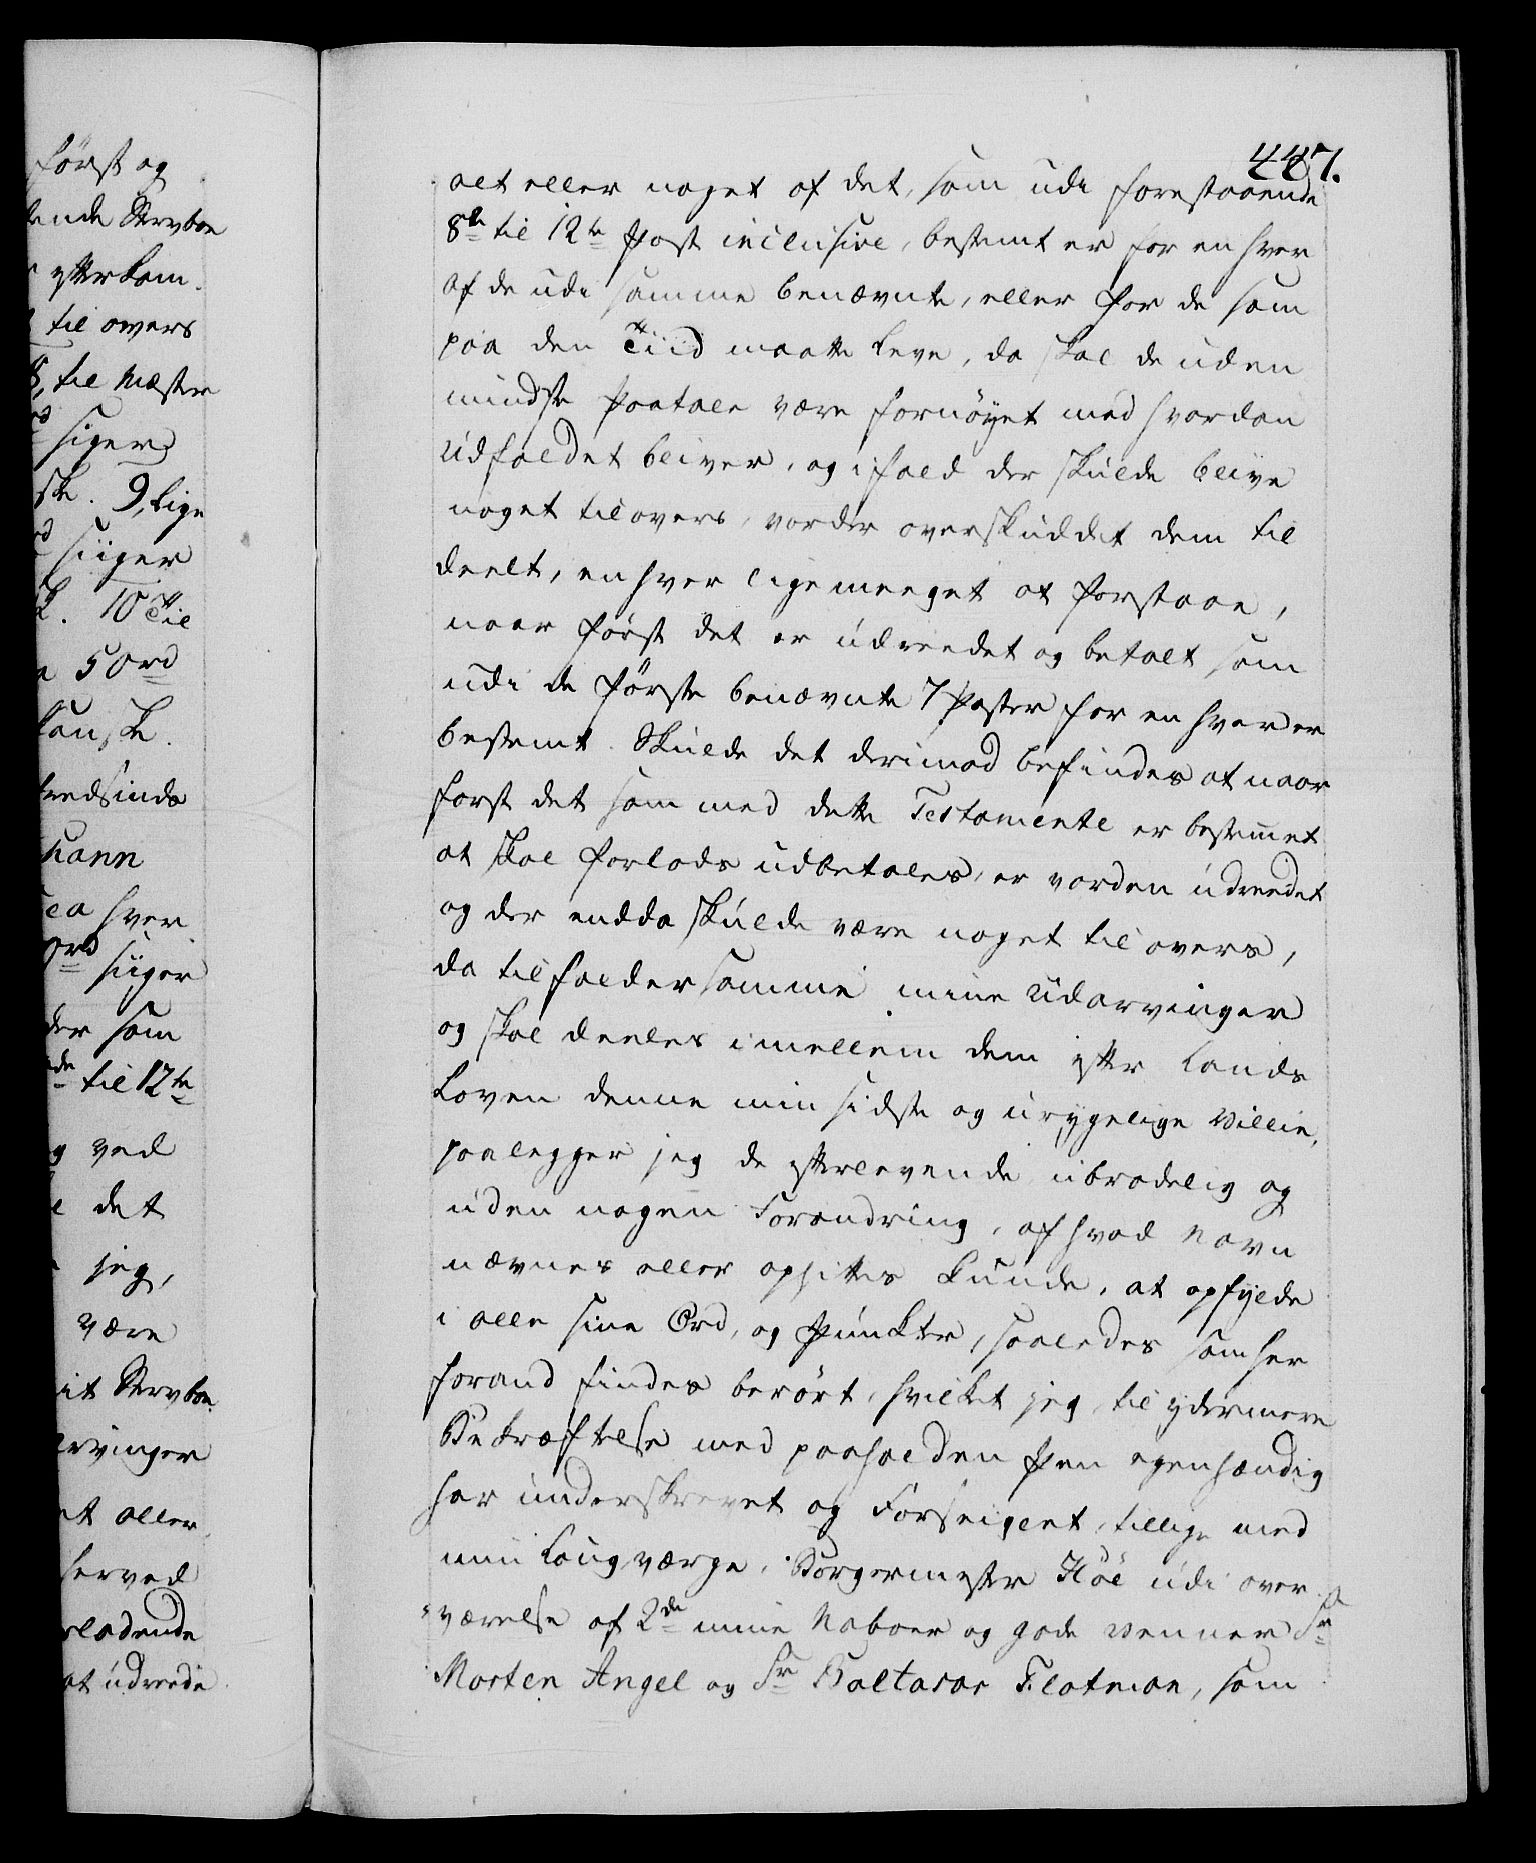 først og
dende Stervboe
r efterkom.
til overs
8, til Mester
siger
ske. 9, lige
siiger
k. 10 Til
a 50rd
danske.
tredsinds
mann
hver
siiger
der som
de til 12te
g ved
det
jeg,
være
it Stervboe
arvinger
et aller
herved
erladende
at udreede
447.
alt eller noget af det, som udi forestaaende
8de til 12te Post inclusive, bestemt er for en hver
af de udi samme benævnte, eller for de som
paa den Tiid maatte leve, da skal de uden
mindste Paatale være fornøyet med hvordan
Udfaldet bliver, og i fald der skulde blive
noget tilovers, vorder overskuddet dem til
deelt, en hver lige meeget at forstaae,
naar først det er udreedet og betalt som
udi de første benævnte 7 Poster for en hver er
bestemt. Skulde det derimod befindes at naar
først det som med dette Testamente er bestemmet
at skal forlods udbetales, er vorden udreedet
og der endda skulde være noget til overs,
da tilfalder samme mine Udarvinger
og skal deeles imellem dem efter Lands
Loven denne min sidste og urygelige Villie,
paalegger jeg de efterlevende ubrødelig og
uden nogen Forandring, af hvad Navn
nævnes eller opsittes kunde, at opfylde
i alle sine Ord, og Puncter, saaledes som her
forand findes berørt, hvilket jeg til ydermere
Bekræftelse med paaholden Pen egenhændig
har underskrevet og Forseiglet, tillige med
min Laugværge, Borgermester Höe udi over
værelse af 2de mine Naboer og gode Venner Sr
Morten Angel og Sr Baltasar Flatman, som